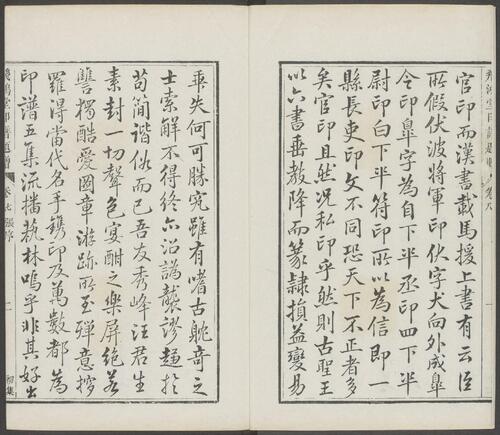 官印而漢書載馬援上書有云臣
所假伏波將軍印伏字犬向外成臯
令印臯字為白下羊丞印四下羊
尉印白下羊符印所以為信即一
縣長吏印文不同恐天下不正者多
矣官印且然况私印乎然則古聖王
以六書垂教降而篆隸損益變易
乖失何可勝究雖有嗜古躭奇之
士索解不得終亦沿譌襲謬趨於
苟簡諧俗而已吾友秀峰汪君生
素封一切聲色宴酣之樂屏絕若
讐獨酷愛圖章游跡所至殫意搜
羅得當代名手鐫印及萬數都為
印譜五集流播藝林嗚乎非其好出
飛鴻堂印譜
卷七張序
二
初集